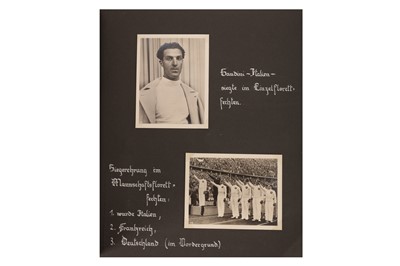 Gaudini-Italien-
siegte im Einzelflorett-
fechten.
Siegerehrung im
Mannschaftsflorett-
fechten:
1. wurde Italien,
2. Frankreich,
3. Deutschland (im Vordergrund)